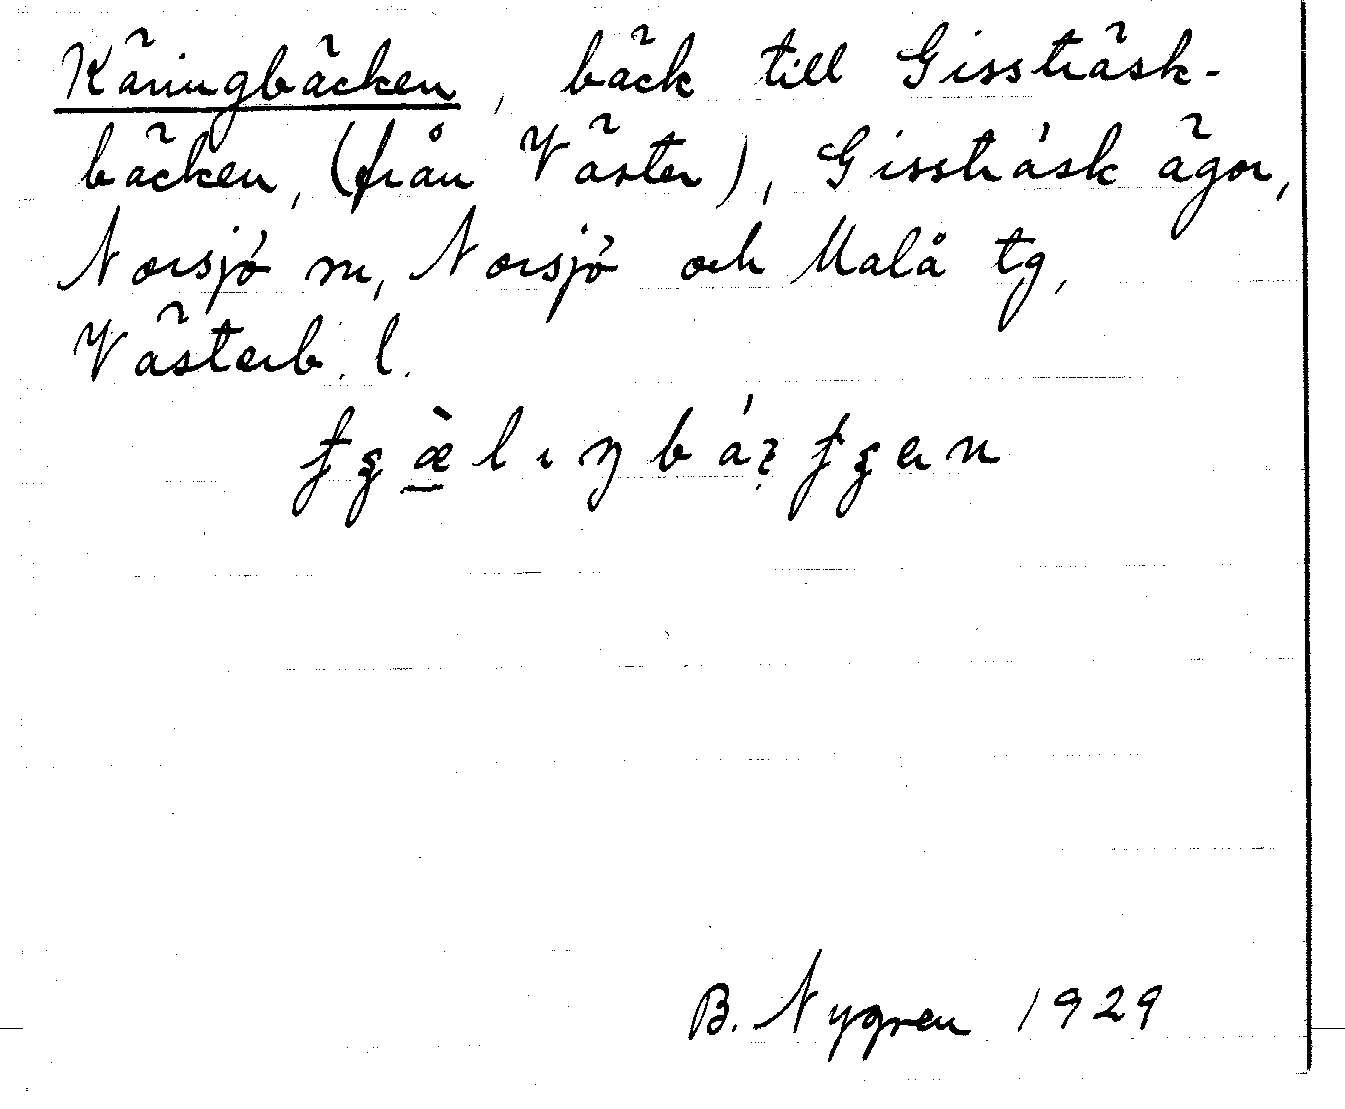 Käringbäcken, bäck till Gissträsk-
bäcken, (från Väster), Gissträsk ägor,
Norsjö sn, Norsjö och Malå tg,
Västerb. l.
B. Nygren 1929